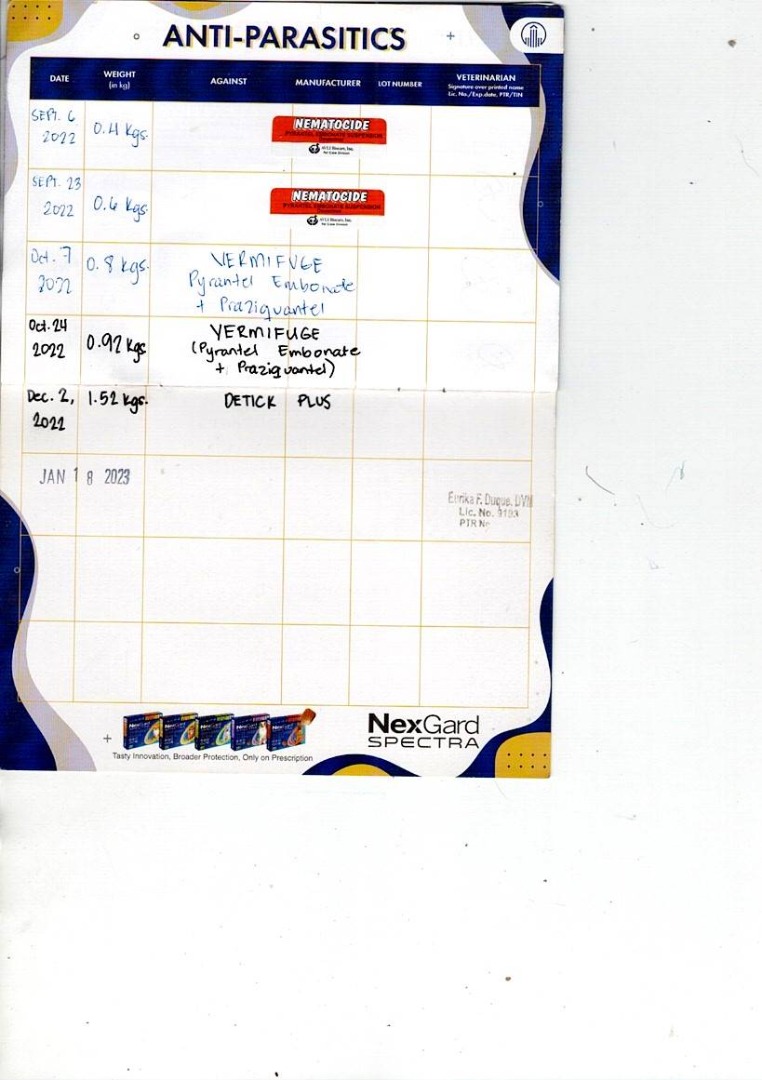 ANTI-PARASITICS
DATE WEIGHT (in kg) AGAINST MANUFACTURER LOT NUMBER VETERINARIAN
Signature over printed name
Lic. No./Exp.date, PTR/TIN
SEPT. 6 2022 0.4 Kgs. NEMATOCIDE
PYRANTEL EMBONATE SUSPENSION
SEPT. 23 2022 0.6 Kgs. NEMATOCIDE
PYRANTEL EMBONATE SUSPENSION
Oct. 7 2022 0.8 kgs. VERMIFUGE
Pyrantel Embonate
+ Praziquantel
Oct. 24 2022 0.92 Kgs VERMIFUGE
(Pyrantel Embonate
+ Praziquantel)
Dec. 2, 2022 1.52 kgs. DETICK PLUS
JAN 18 2023
F. Duque, DVM
Lic. No.
PTR
NexGard
SPECTRA
Tasty Innovation, Broader Protection, Only on Prescription